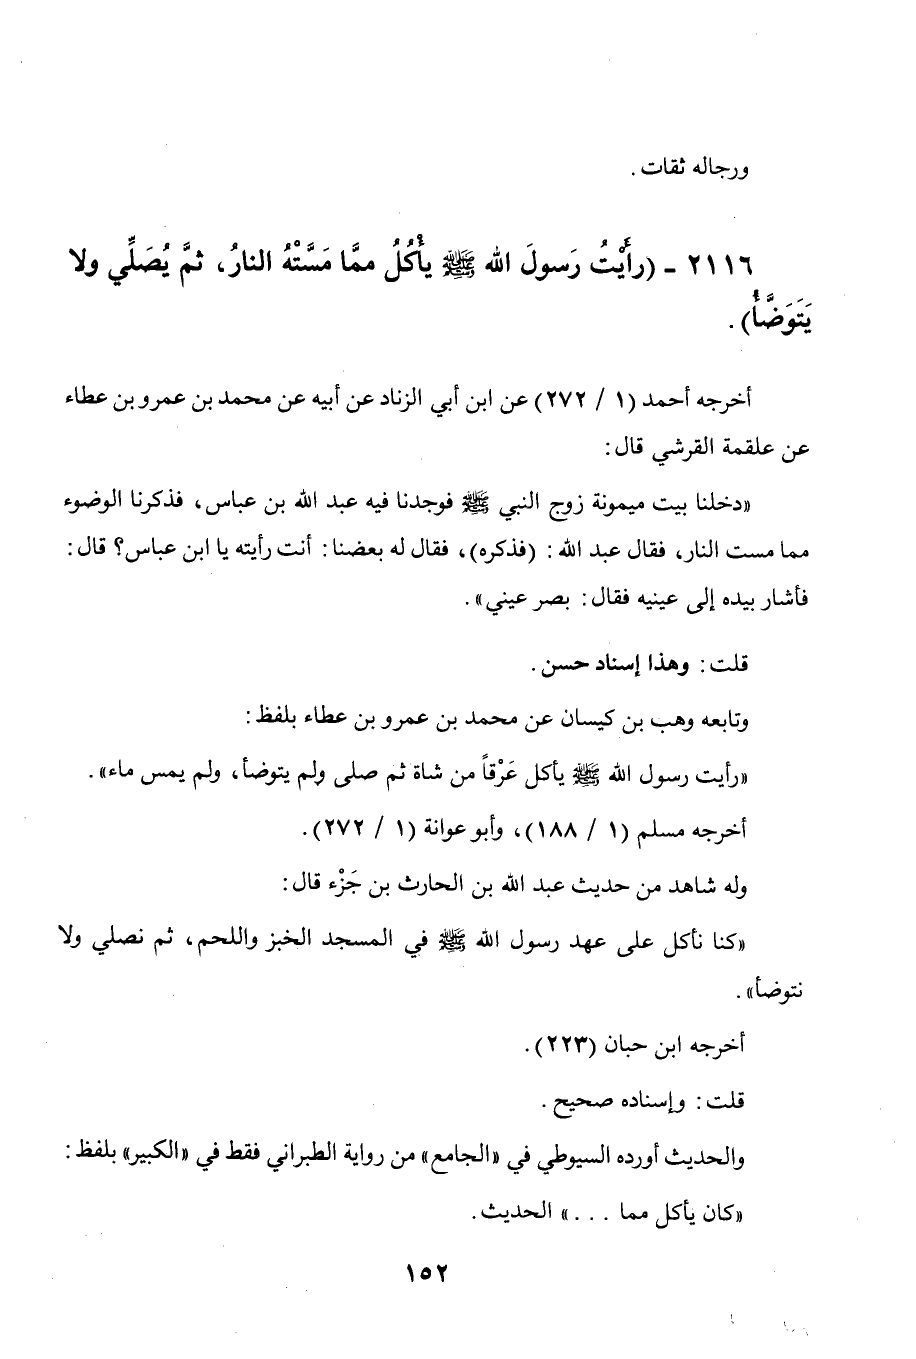 ورجاله ثقات .
٢١١٦ - (رأَيْتُ رَسولَ الله ﷺ يأْكُلُ ممَّا مَسَّتْهُ النارُ، ثمَّ يُصَلِّي ولا
يَتَوَضَّأُ) .
أخرجه أحمد (١ / ٢٧٢) عن ابن أبي الزناد عن أبيه عن محمد بن عمرو بن عطاء
عن علقمة القرشي قال:
«دخلنا بيت ميمونة زوج النبي ﷺ فوجدنا فيه عبد الله بن عباس، فذكرنا الوضوء
مما مست النار، فقال عبد الله : (فذكره)، فقال له بعضنا: أنت رأيته يا ابن عباس؟ قال:
فأشار بيده إلى عينيه فقال: بصر عيني» .
قلت: وهذا إسناد حسن .
وتابعه وهب بن كيسان عن محمد بن عمرو بن عطاء بلفظ:
«رأيت رسول الله ﷺ يأكل عَرْقاً من شاة ثم صلى ولم يتوضأ، ولم يمس ماء» .
أخرجه مسلم (١ / ١٨٨)، وأبو عوانة (١ / ٢٧٢) .
وله شاهد من حديث عبد الله بن الحارث بن جَزْء قال:
«كنا نأكل على عهد رسول الله ﷺ في المسجد الخبز واللحم، ثم نصلي ولا
نتوضأ» .
أخرجه ابن حبان (٢٢٣) .
قلت: وإسناده صحيح .
والحديث أورده السيوطي في «الجامع» من رواية الطبراني فقط في «الكبير» بلفظ:
«كان يأكل مما . . . » الحديث .
١٥٢